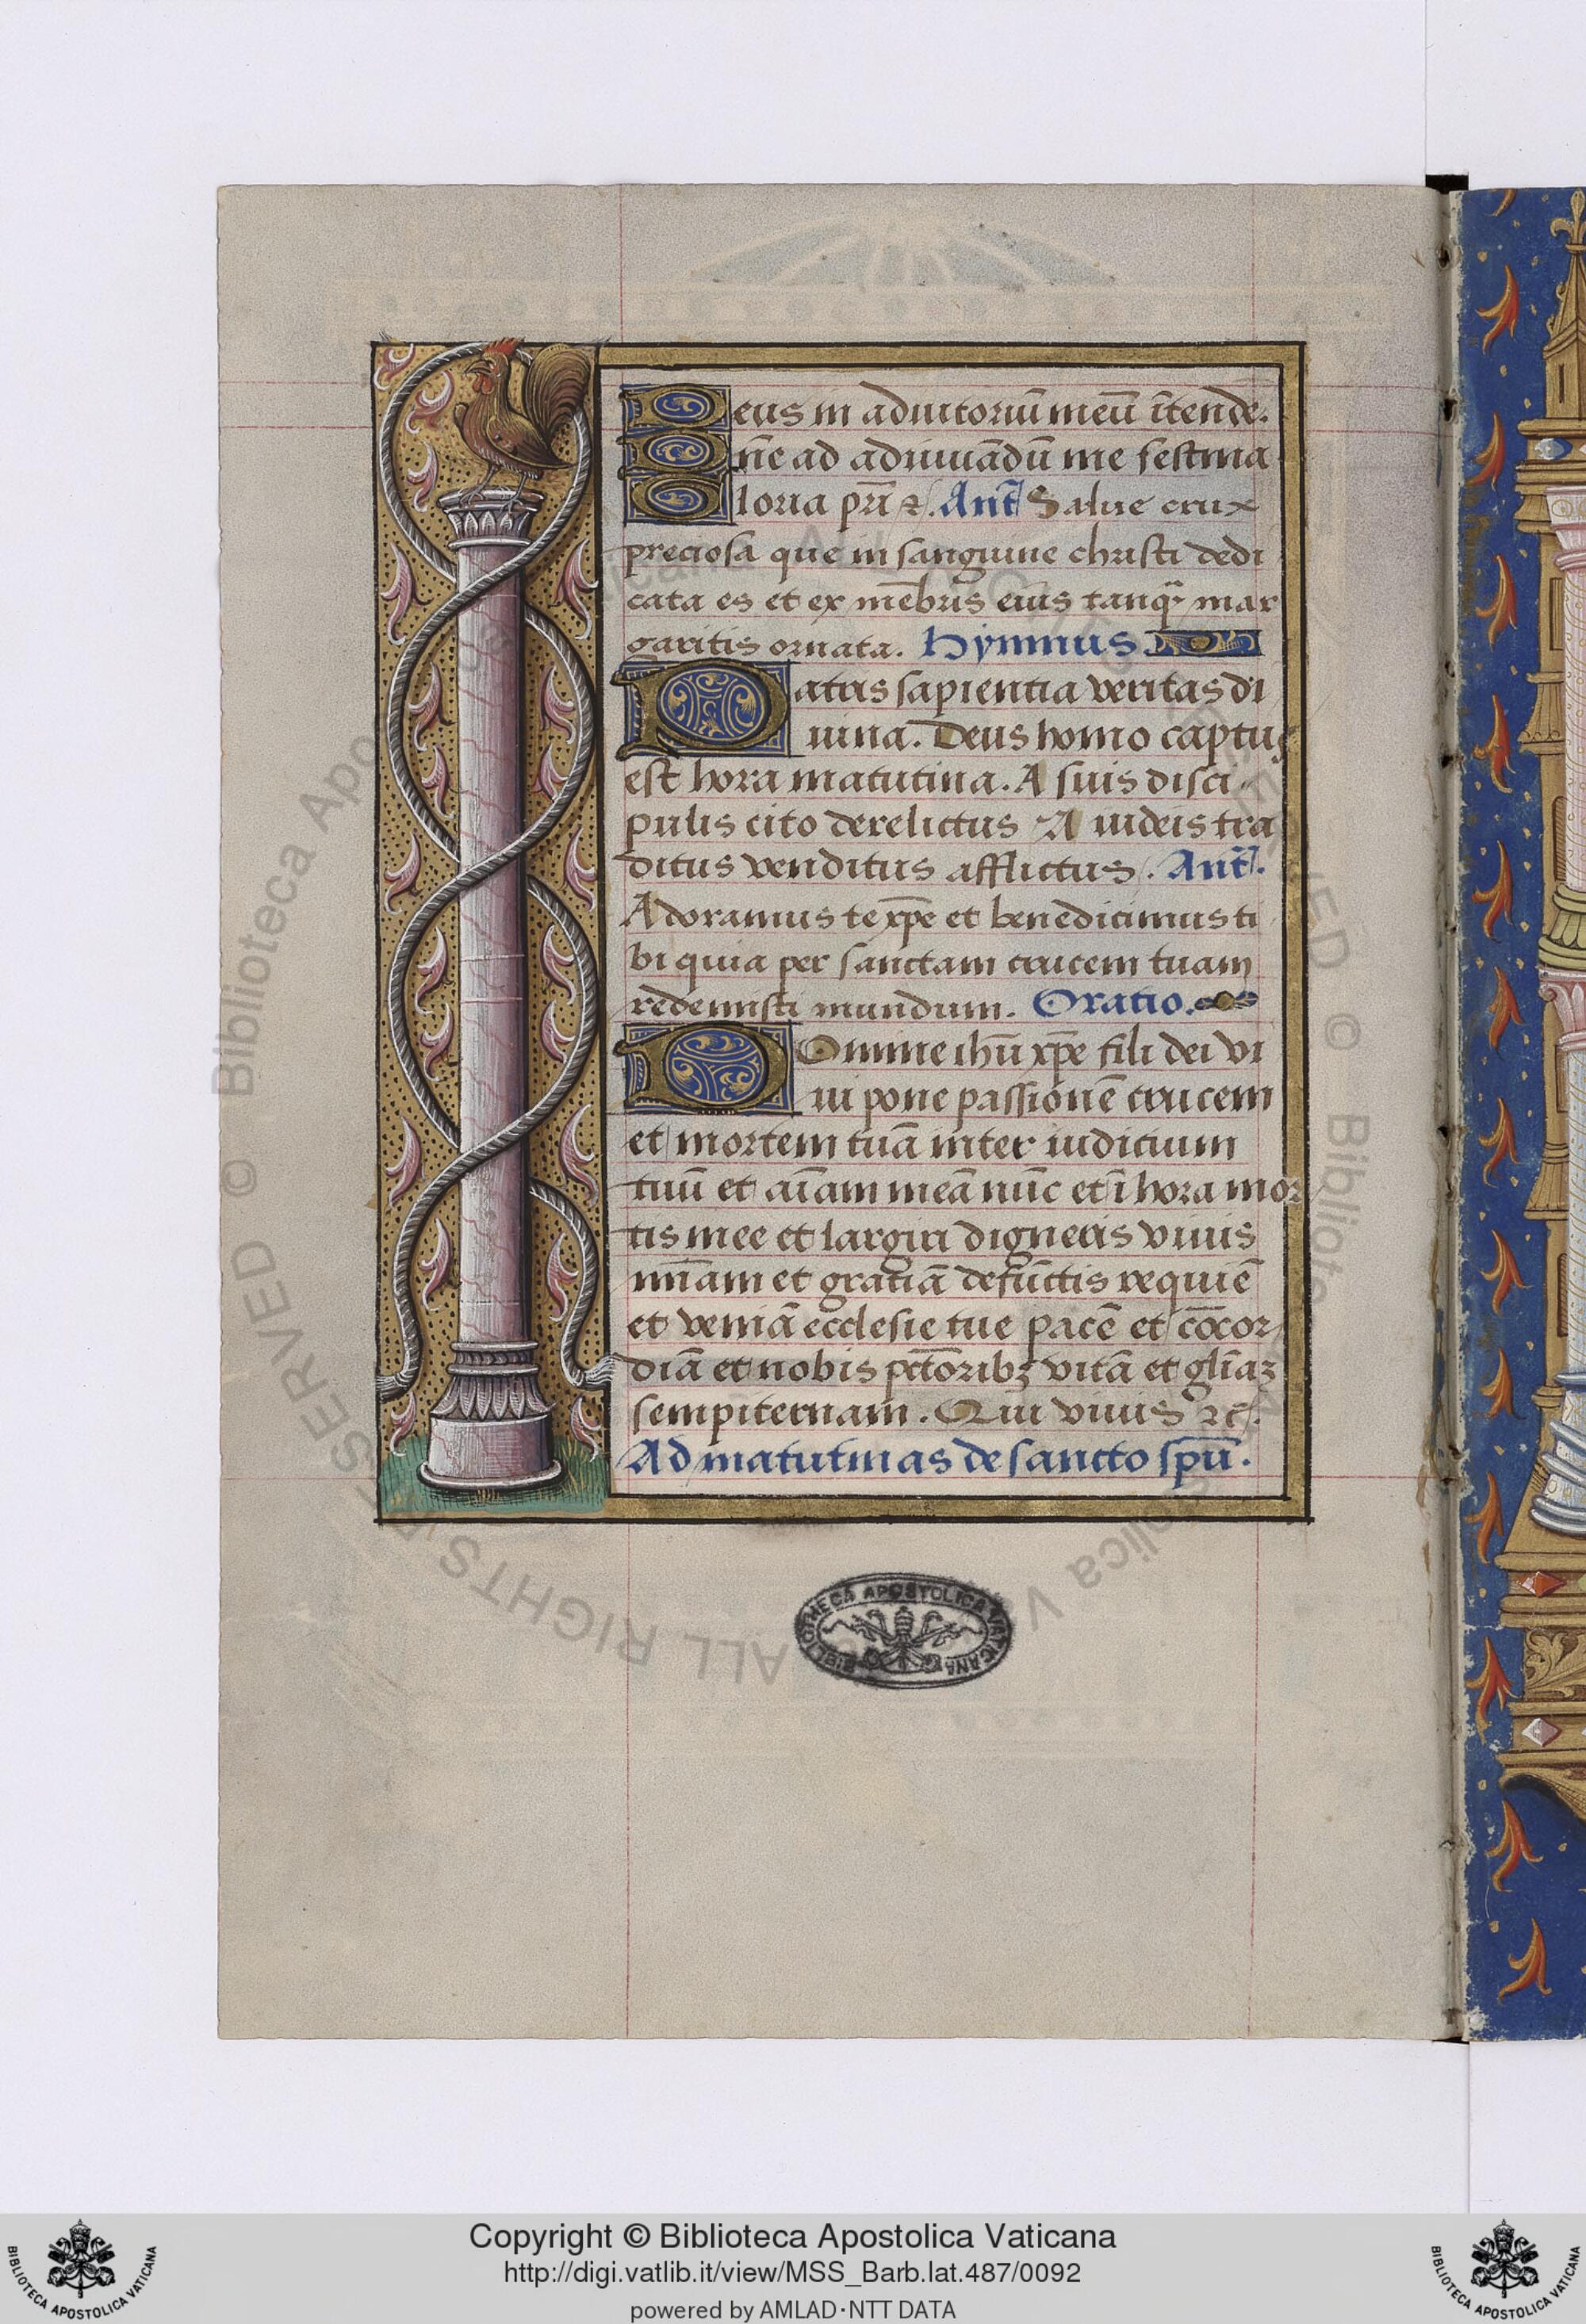 Deus in adiutoriū meū ītende.
Dn̄e ad adiuuādū me festina
Gloria pr̄i ⁊c̄. Ant̄ Salue crux
preciosa que in sanguine christi dedi
cata es et ex mēbris eius tanq̄ mar
garitis ornata. Hymnus
Patris sapientia veritas di
uina. Deus homo captus
est hora matutina. A suis disci
pulis cito derelictus A iudeis tra
ditus venditus afflictus. Ant̄.
Adoramus te xp̄e et benedicimus ti
bi quia per sanctam crucem tuam
redemisti mundum. Oratio.
DOmine ihū xp̄e fili dei vi
ui pone passionē crucem
et mortem tuā inter iudicium
tuū et aīam meā nūc et ī hora mor
tis mee et largiri digneris viuis
mīam et gratiā defūctis requiē
et veniā ecclesie tue pacē et cōcor
diā et nobis pct̄oribꝫ vitā et glīaꝫ
sempiternam. Qui viuis ⁊c̄.
Ad matutinas de sancto spū.
BIBLIOTHECA APOSTOLICA VATICANA
Copyright © Biblioteca Apostolica Vaticana
http://digi.vatlib.it/view/MSS_Barb.lat.487/0092
powered by AMLAD·NTT DATA
BIBLIOTECA APOSTOLICA VATICANA
BIBLIOTECA APOSTOLICA VATICANA